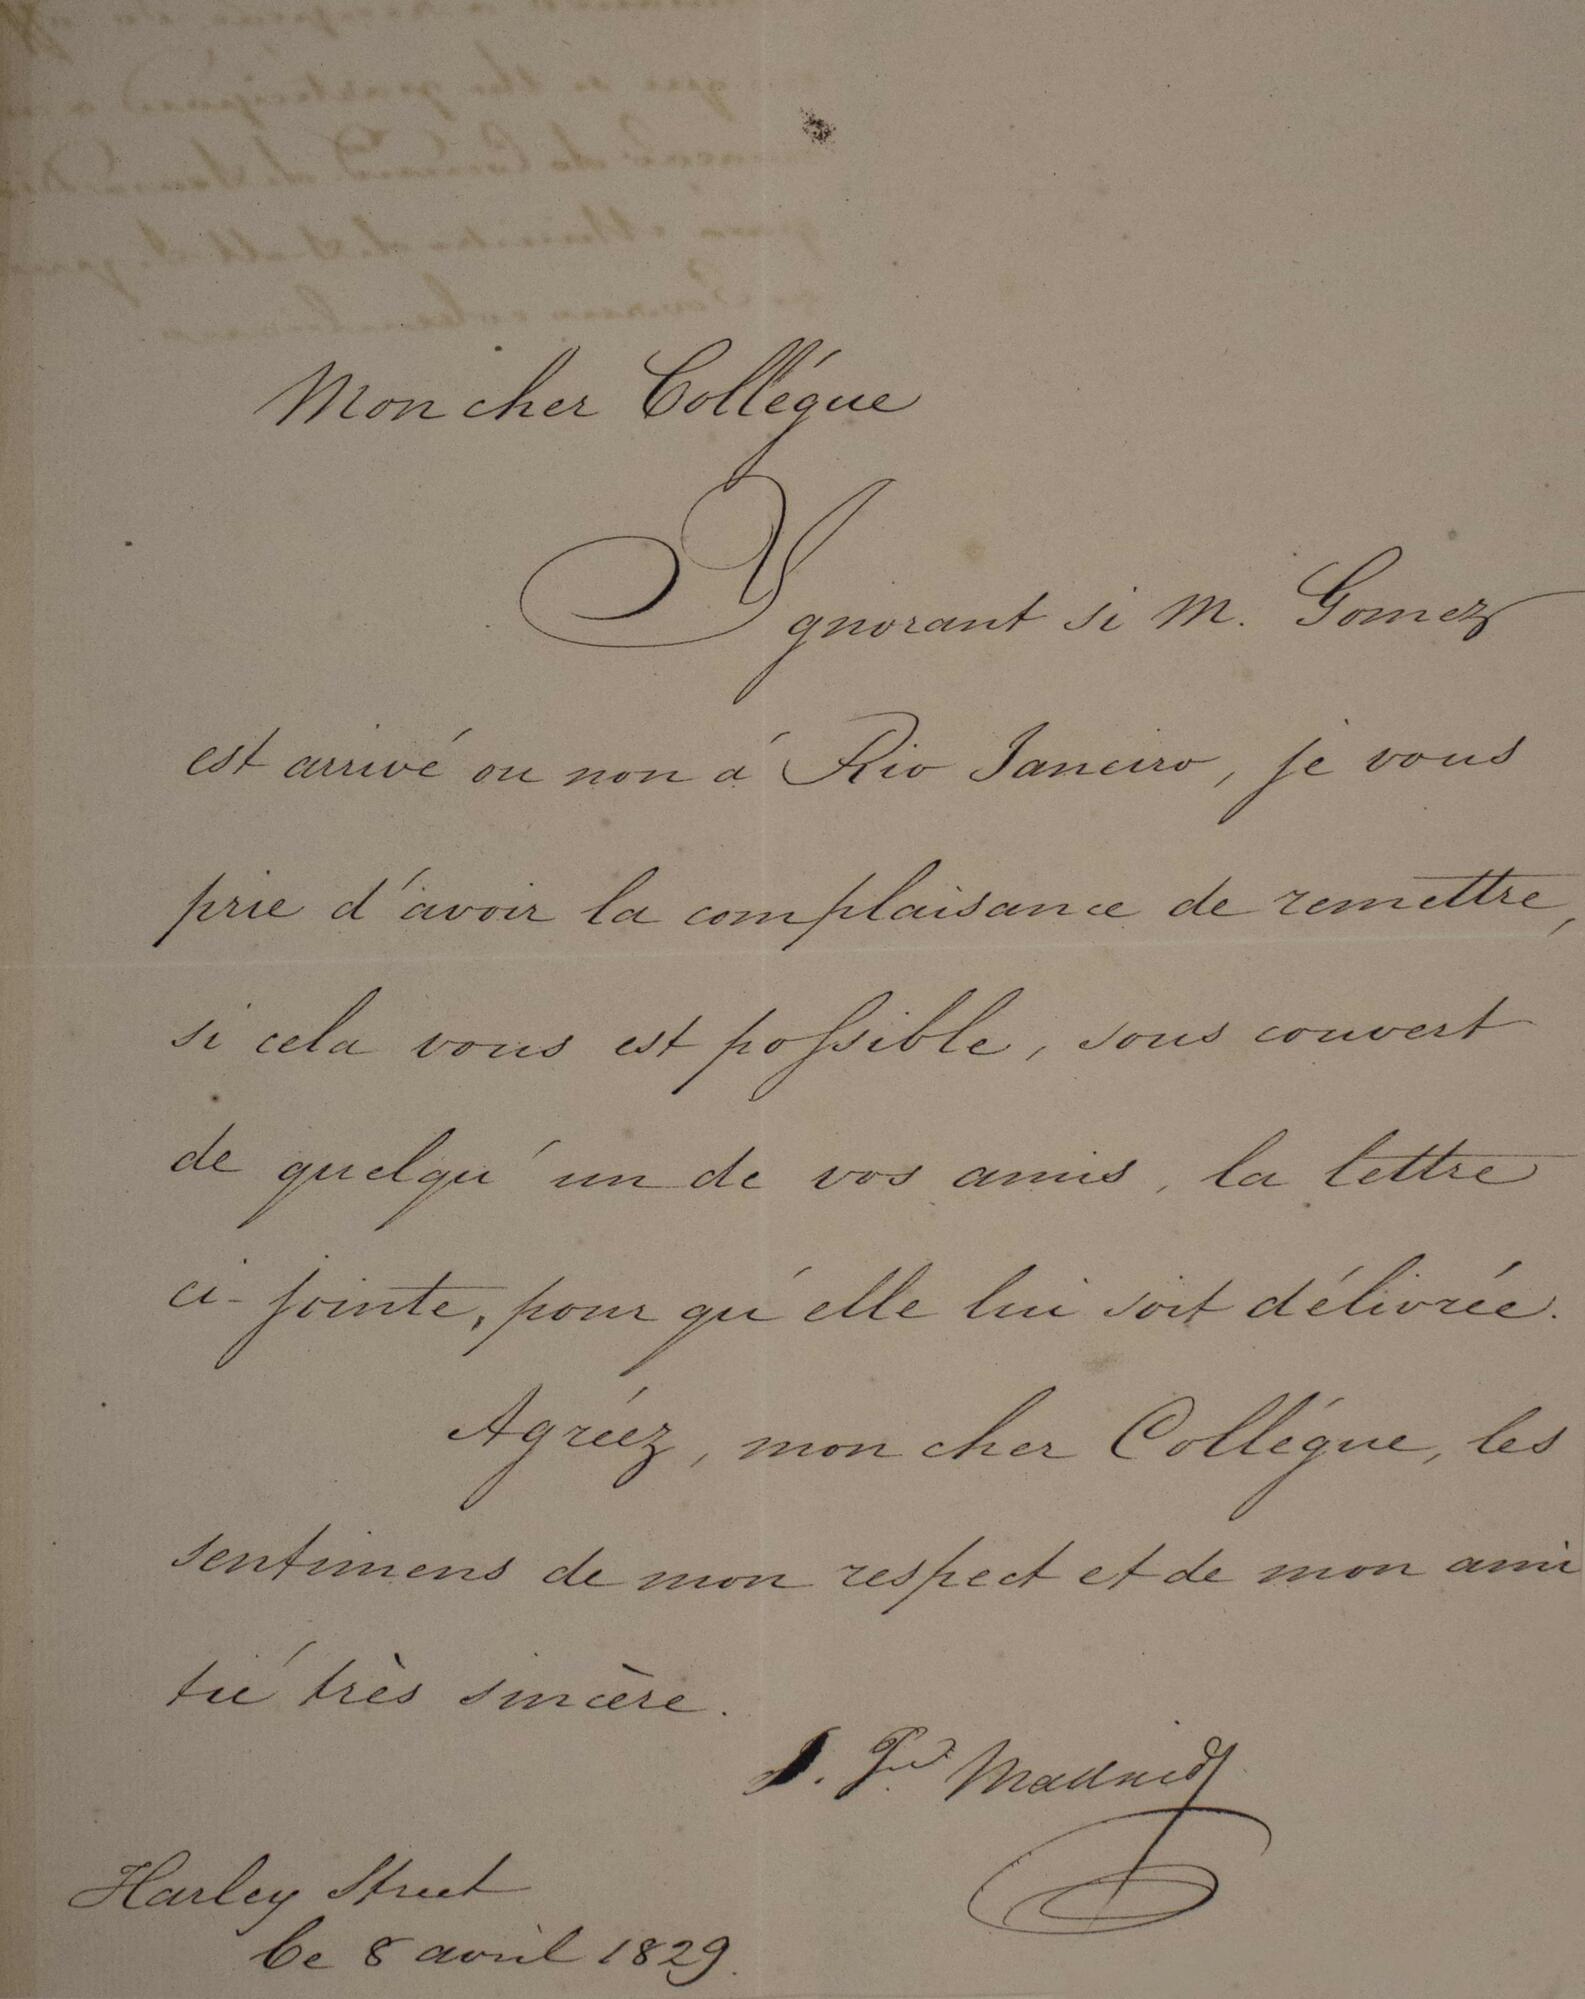 Mon cher Collégue
Ygnorant si M. Gomez
est arrivé ou non á Rio Janeiro, je vous
prie d'avoir la complaisance de remettre,
si cela vous est possible, sous couvert
de quelqu'un de vos amis, la lettre
ci-jointe, pour qu'elle lui soit délivrée.
Agréez, mon cher Collégue, les
sentimens de mon respect et de mon ami
tié très sincère.
J. Madrid
Harley Street
Le 8 avril 1829.